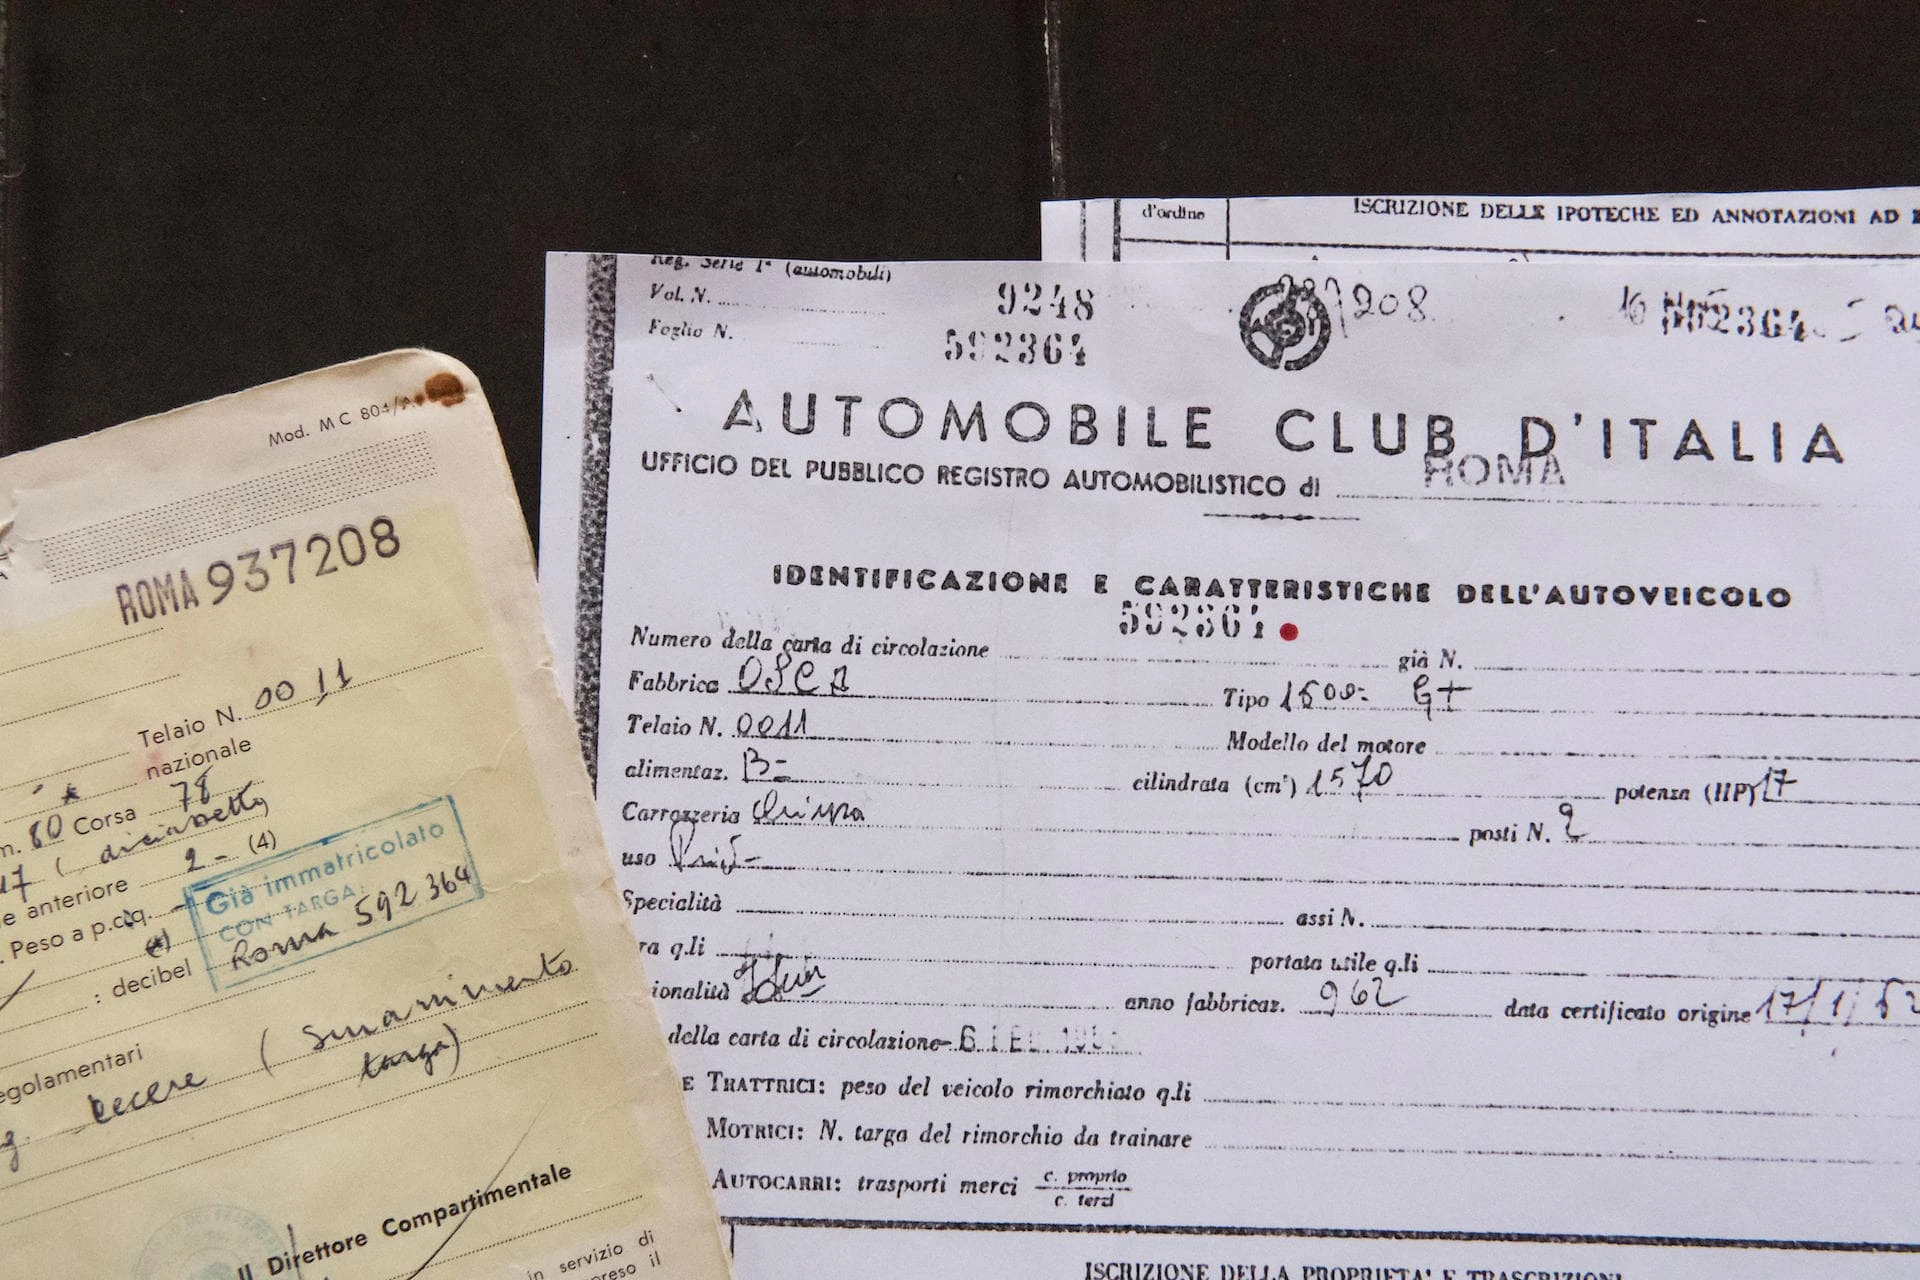 Mod. MC 804/A
ROMA 937208
Telaio N. 0011
nazionale
m. 80 Corsa 78
17 (diciassette)
e anteriore 2- (4)
. Peso a p.c.q.
: decibel
Già immatricolato
CON TARGA:
Roma 592364
egolamentari
(smarrimento
targa)
Il Direttore Compartimentale
in servizio di
preso il
d'ordine
ISCRIZIONE DELLE IPOTECHE ED ANNOTAZIONI AD
Reg. Serie Iª (automobili)
Vol. N. 9248
Foglio N. 592364
208
592364
AUTOMOBILE CLUB D'ITALIA
UFFICIO DEL PUBBLICO REGISTRO AUTOMOBILISTICO di ROMA
IDENTIFICAZIONE E CARATTERISTICHE DELL'AUTOVEICOLO
Numero della carta di circolazione 592364 già N.
Fabbrica OSCA Tipo 1600 - GT
Telaio N. 0011 Modello del motore
alimentaz. B- cilindrata (cm³) 1570 potenza (HP) 17
Carrozzeria chiusa posti N. 2
uso Priv-
Specialità assi N.
ra q.li portata utile q.li
ionalità anno fabbricaz. 962 data certificato origine 17/1/62
della carta di circolazione 6 FEB.
E TRATTRICI: peso del veicolo rimorchiato q.li
MOTRICI: N. targa del rimorchio da trainare
AUTOCARRI: trasporti merci c. proprio
c. terzi
ISCRIZIONE DELLA PROPRIETA' E TRASCRIZIONI